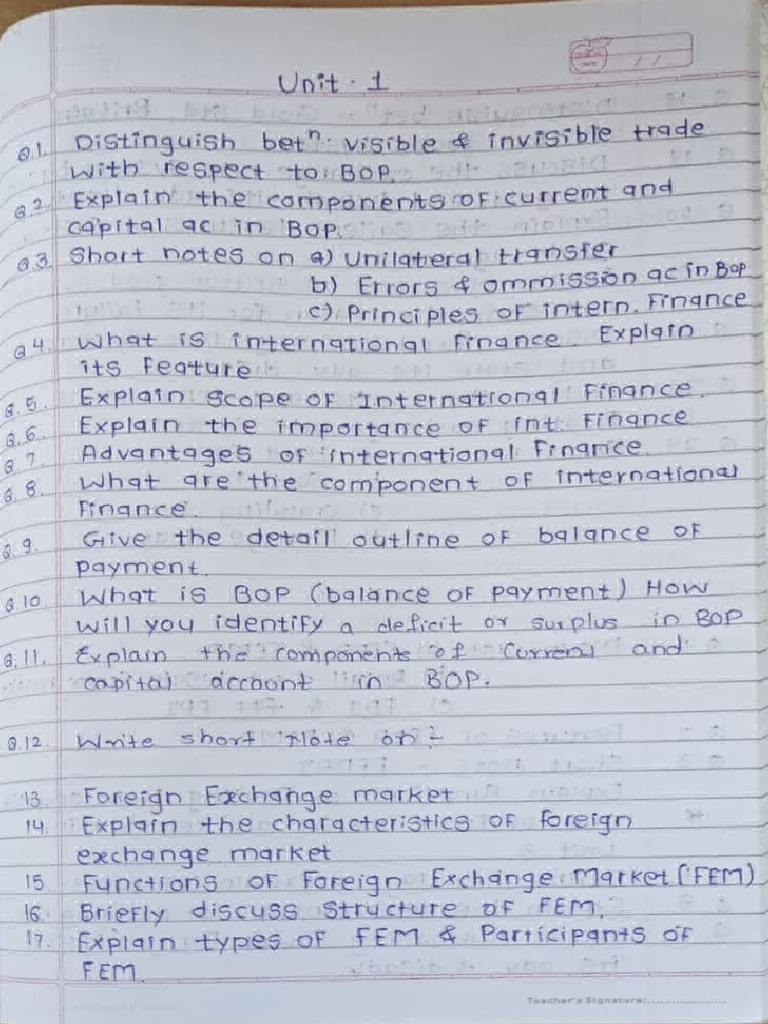 Unit - 1
Q.1. Distinguish betⁿ visible & invisible trade
with respect to BOP.
Q.2. Explain the components of current and
capital ac in BOP.
Q.3 Short notes on a) Unilateral transfer
b) Errors & ommission ac in Bop
c) Principles of intern. Finance
Q.4. What is international Finance. Explain
its Feature
Q.5. Explain scope of International Finance.
Q.6. Explain the importance of int. Finance
Q.7 Advantages of international Finance.
Q.8. What are the component of international
Finance.
Q.9. Give the detail outline of balance of
payment.
Q.10. What is BOP (balance of payment) How
will you identify a deficit or surplus in BOP
Q.11. Explain the components of Current and
capital account in BOP.
Q.12 Write short Note on :-
13. Foreign Exchange market
14. Explain the characteristics of foreign
exchange market
15 Functions of Foreign Exchange Market (FEM)
16. Briefly discuss structure of FEM.
17. Explain types of FEM & Participants of
FEM.
Teacher's Signature: